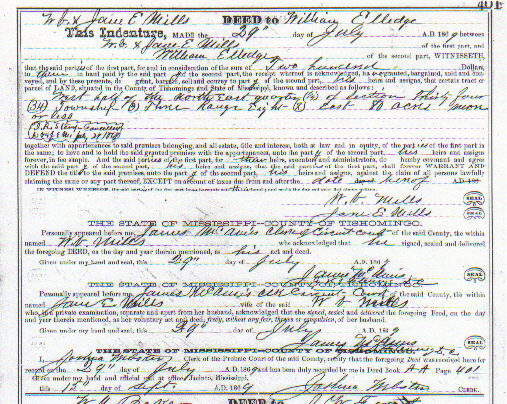 401
W. & Jane E Mills DEED to William Elledge
This Indenture, MADE the 29" day of July A.D. 1869 between
W. & Jane E Mills of the first part, and
William Elledge of the second part, WITNESSETH,
that the said parties of the first part, for and in consideration of the sum of Two hundred Dollars,
to them in hand paid by the said part y of the second part, the receipt whereof is acknowledged, ha granted, bargained, sold and conveyed, and by these presents, do grant, bargain, sell and convey to part y of the second part, his heirs and assigns, that certain tract or
parcel of LAND, situated in the County of Tishomingo and State of Mississippi, known and described as follows:
East half of the North East quarter of Section thirty four
(34) Township (3) Three Range Eight (8) East 80 acres more
or less
together with appurtenances to said premises belonging, and all estate, title and interest, both at law and in equity, of the part ies of the first part in
the same; to have and to hold the said granted premises with the appurtenances, unto the part y of the second part, his heirs and assigns
forever, in fee simple. And the said parties of the first part, for their heirs, executors and administrators, do hereby covenant and agree
with the said part y of the second part, his heirs and assigns, that the said parties of the first part, shall forever WARRANT AND
DEFEND the title to the said premises unto the part y of the second part, his heirs and assigns, against the claim of all persons lawfully
claiming the same or any part thereof, EXCEPT on account of taxes due from and after the date hereof A.D. 18
W. Mills SEAL
Jane E Mills SEAL
THE STATE OF MISSISSIPPI—COUNTY OF TISHOMINGO.
Personally appeared before me, James McAnis Circuit court of the said County, the within
named W. Mills who acknowledged that he signed, sealed and delivered
the foregoing DEED, on the day and year therein mentioned, as his act and deed.
Given under my hand and seal, this 29" day of July A.D. 1869
James McAnis SEAL
THE STATE OF MISSISSIPPI—COUNTY OF TISHOMINGO.
Personally appeared before me, James McAnis clerk Circuit Court of the said County, the within
named Jane E Mills wife of the said W Mills
who, in a private examination, separate and apart from her husband, acknowledged that she signed, sealed and delivered the foregoing Deed, on the day
and year therein mentioned, as her voluntary act and deed, freely, without any fear, threats or compulsion, of her husband.
Given under my hand and seal, this 29" day of July A.D. 1869
James McAnis
THE STATE OF MISSISSIPPI—COUNTY OF TISHOMINGO.
I, Joshua Webster Clerk of the Probate Court of the said County, certify that the foregoing Deed was received here for
record on the 29" day of July A.D. 1869 and has been duly recorded by me in Deed Book AA Page 401
Given under my hand and official seal at office, Jacinto, Mississippi,
this 12 day of Sept A.D. 1869 Joshua Webster CLERK.
DEED to